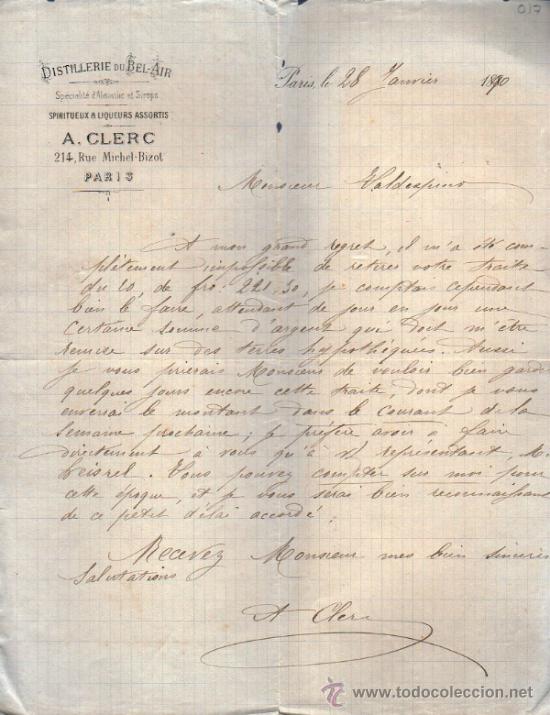 017
DISTILLERIE DU BEL-AIR
Spécialité d'Absinthe et Sirops
SPIRITUEUX & LIQUEURS ASSORTIS
A. CLERC
214, Rue Michel-Bizot
PARIS
Paris, le 28 Janvier 1890
Monsieur Valdespino
A mon grand regret, il m'a été com-
plètement impossible de retirer votre traite
du 20, de frs. 221,30, je comptais cependant
bien le faire, attendant de jour en jour une
certaine somme d'argent qui doit m'être
remise sur des terres hypothéquées. Aussi
je vous prierais Monsieur de vouloir bien garder
quelques jours encore cette traite, dont je vous
enverrai le montant dans le courant de la
semaine prochaine; je préfère avoir à faire
directement à vous qu'à représentant, M.
Vous pouvez compter sur moi pour
cette époque, et je vous serai bien reconnaissant
de ce petit délai accordé.
Recevez Monsieur mes bien sincères
Salutations
A Clerc
www.todocoleccion.net